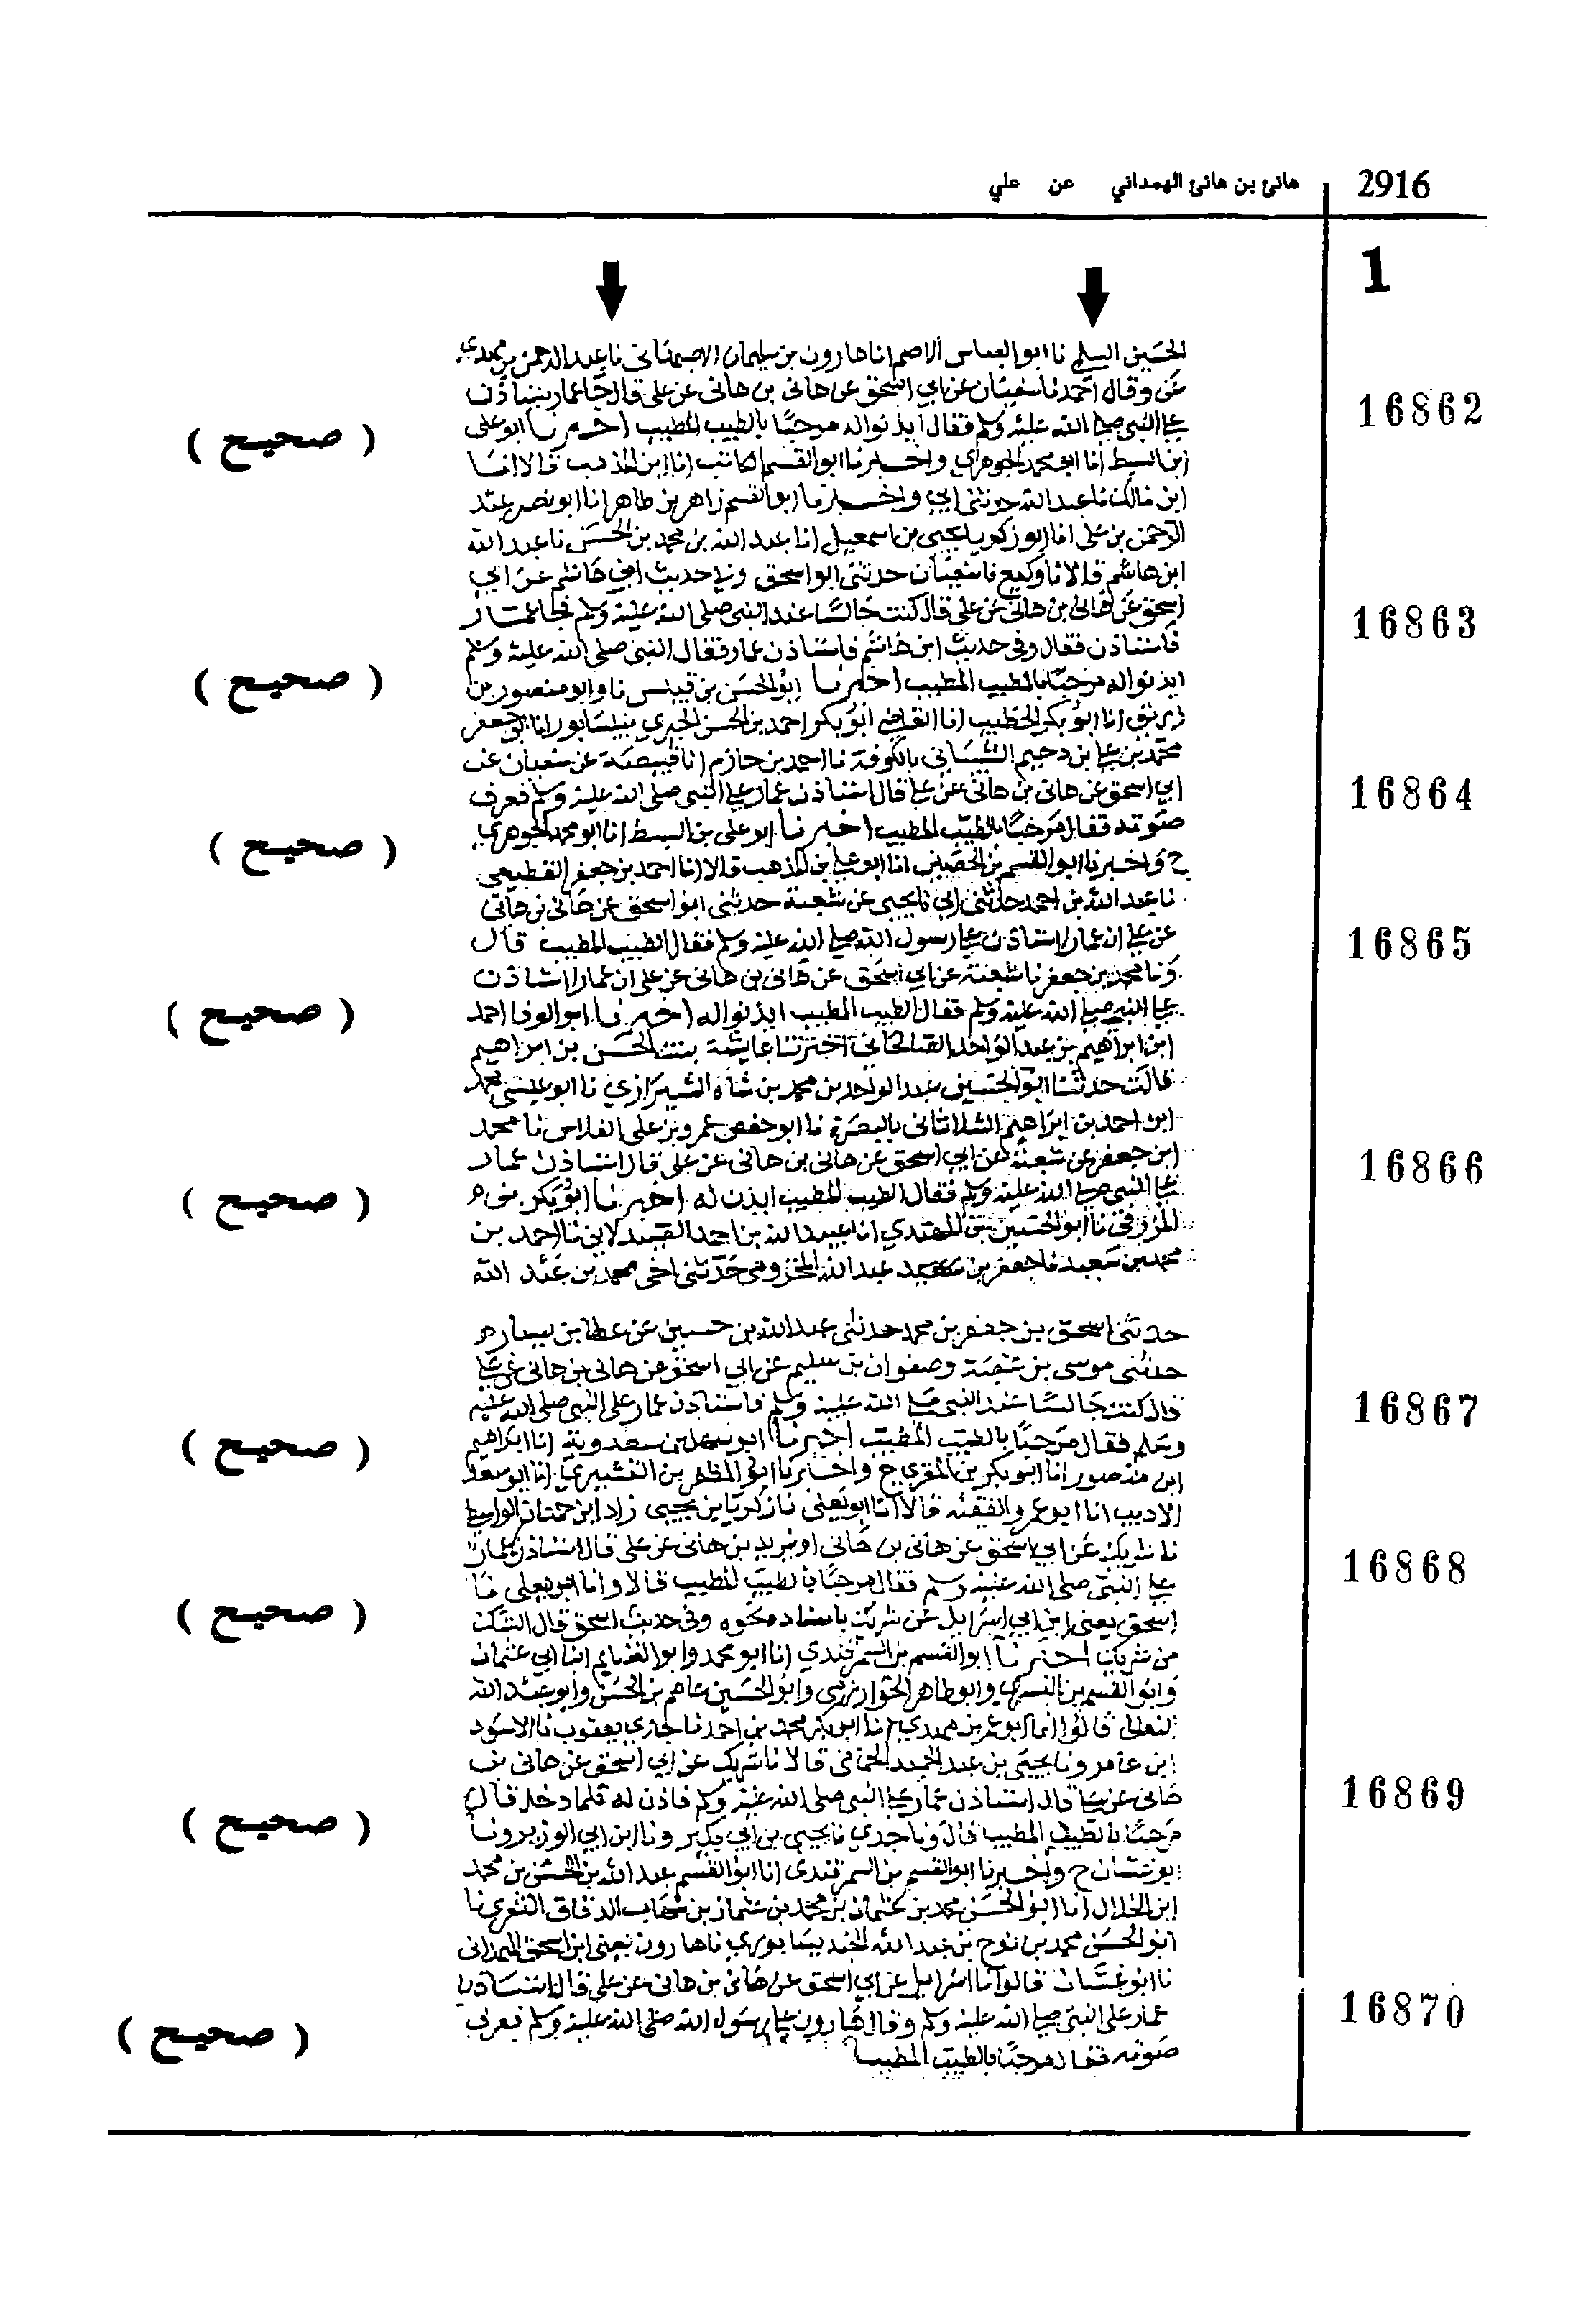 2916 هانئ بن هانئ الهمداني عن علي
1
الحسين السلمي نا ابو العباس الاصم انا هارون بن سليمان الاصبهاني نا عبد الرحمن بن مهدي
عن وقال احمد نا سفيان عن ابي اسحق عن هاني بن هاني عن علي قال جا عمار يستاذن
16862
على النبي صلى الله عليه وسلم فقال ايذنوا له مرحبا بالطيب المطيب اخبرنا ابو على
( صحيح )
ابن السبط انا ابو محمد الجوهري واخبرنا ابو القسم الكاتب انا ابن المذهب قالا انا
ابن مالك نا عبد الله حدثني ابي واخبرنا ابو القسم زاهر بن طاهر انا ابو نصر عبد
الرحمن بن علي انا ابو زكريا يحيى بن اسمعيل انا عبد الله بن محمد بن الحسن نا عبد الله
ابن هاشم قالا نا وكيع نا سفيان حدثني ابو اسحق وفي حديث ابن هاشم عن ابي
اسحق عن هاني بن هاني عن علي قال كنت جالسا عند النبي صلى الله عليه وسلم فجا عمار
16863
فاستاذن فقال وفي حديث ابن هاشم فاستاذن عمار فقال النبي صلى الله عليه وسلم
ايذنوا له مرحبا بالطيب المطيب اخبرنا ابو الحسن بن قبيس نا وابو منصور بن
( صحيح )
زريق انا ابو بكر الخطيب انا القاضي ابو بكر احمد بن الحسن الحيري بنيسابور انا ابو جعفر
محمد بن علي بن دحيم الشيباني بالكوفة نا احمد بن حازم انا قبيصة عن سفيان عن
ابي اسحق عن هاني بن هاني عن علي قال استاذن عمار على النبي صلى الله عليه وسلم فعرف
16864
صوته فقال مرحبا بالطيب المطيب اخبرنا ابو على بن السبط انا ابو محمد الجوهري
( صحيح )
ح واخبرنا ابو القسم بن الحصين انا ابو علي بن المذهب قالا انا احمد بن جعفر القطيعي
نا عبد الله بن احمد حدثني ابي نا يحيى عن شعبة حدثني ابو اسحق عن هاني بن هاني
عن علي ان عمارا استاذن على رسول الله صلى الله عليه وسلم فقال الطيب المطيب قال
16865
ونا محمد بن جعفر نا شعبة عن ابي اسحق عن هاني بن هاني عن علي ان عمارا استاذن
على النبي صلى الله عليه وسلم فقال الطيب المطيب ايذنوا له اخبرنا ابو الوفا احمد
( صحيح )
ابن ابراهيم بن عبد الواحد اخبرتنا عايشة بنت الحسن بن ابراهيم
قالت حدثنا ابو الحسين عبد الواحد بن محمد بن شاه الشيرازي نا ابو عيسى محمد
ابن احمد بن ابراهيم الشلاثاني بالبصرة نا ابو حفص عمرو بن علي الفلاس نا محمد
ابن جعفر عن شعبة عن ابي اسحق عن هاني بن هاني عن علي قال استاذن عمار
16866
على النبي صلى الله عليه وسلم فقال الطيب المطيب ايذن له اخبرنا ابو بكر
( صحيح )
المزرفي نا ابو الحسين بن المهتدي انا عبيد الله بن احمد الصيدلاني نا احمد بن
محمد بن سعيد نا جعفر بن عبد الله المخزومي حدثني اخي محمد بن عبد الله
حدثني اسحق بن جعفر بن محمد حدثني عبد الله بن حسين عن عطا بن يسار ه
حدثني موسى بن عقبة وصفوان بن سليم عن ابي اسحق عن هاني بن هاني عن علي
قال كنت جالسا عند النبي صلى الله عليه وسلم فاستاذن عمار على النبي صلى الله عليه
16867
وسلم فقال مرحبا بالطيب المطيب اخبرنا ابو سهل بن سعدوية انا ابراهيم
( صحيح )
ابن منصور انا ابو بكر بن المقري ح واخبرنا ابو المظفر بن القشيري انا ابو سعد
الاديب انا ابو عمرو الفقيه قالا انا ابو يعلى نا زكريا بن يحيى زاد ابن حمدان الواسطي
نا شريك عن ابي اسحق عن هاني بن هاني او يزيد بن هاني عن علي قال استاذن عمار
16868
على النبي صلى الله عليه وسلم فقال مرحبا بالطيب المطيب قالا وانا ابو يعلى نا
اسحق يعني ابن ابي اسرايل عن شريك باسناده نحوه وفي حديث اسحق قال الشك
( صحيح )
من شريك اخبرنا ابو القسم بن السمرقندي انا ابو محمد وابو الغنايم ابنا ابي عثمان
وابو القسم بن البسري وابو طاهر الخوارزمي وابو الحسين عاصم بن الحسن وابو عبد الله
النعالي قالوا انا ابو عمر بن مهدي انا ابو بكر محمد بن احمد نا جدي يعقوب نا الاسود
ابن عامر ونا يحيى بن عبد الحميد الحماني قالا نا شريك عن ابي اسحق عن هاني بن
هاني عن علي قال استاذن عمار على النبي صلى الله عليه وسلم فاذن له فلما دخل قال
16869
مرحبا بالطيب المطيب قال ونا جدي نا يحيى بن ابي بكير ونا ابن ابي الوزير ونا
( صحيح )
ابو غسان ح واخبرنا ابو القسم بن السمرقندي انا ابو القسم عبد الله بن الحسن بن محمد
ابن الخلال انا ابو الحسن محمد بن عثمان بن محمد بن عثمان بن شهاب الدقاق النفري نا
ابو الحسن محمد بن نوح بن عبد الله الجنديسابوري نا هارون يعني ابن اسحق الهمداني
نا ابو غسان قالوا نا اسرايل عن ابي اسحق عن هاني بن هاني عن علي قال استاذن
16870
عمار على النبي صلى الله عليه وسلم وقال هارون على رسول الله صلى الله عليه وسلم فعرف
( صحيح )
صوته فقال مرحبا بالطيب المطيب